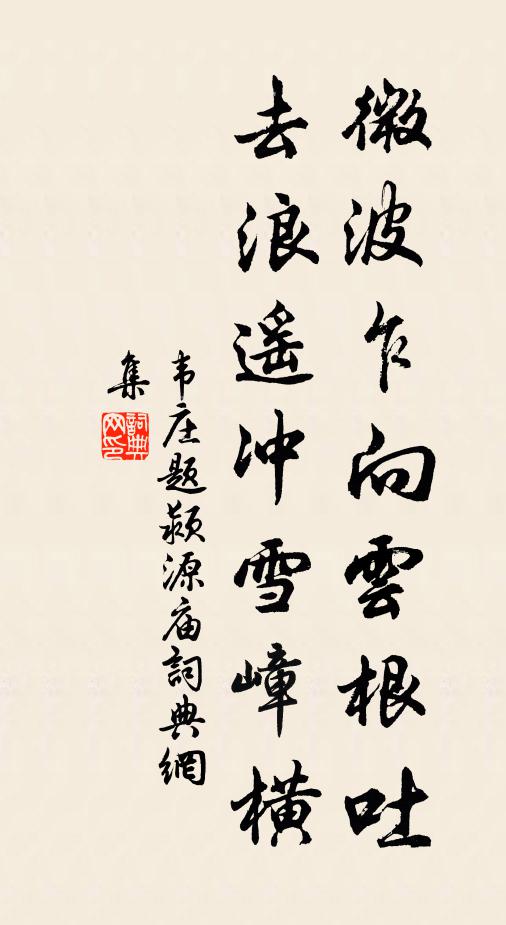 微波乍向雲根吐
去浪遥冲雪嶂横
韦庄题颍源庙詞典網
集
詞典
网印